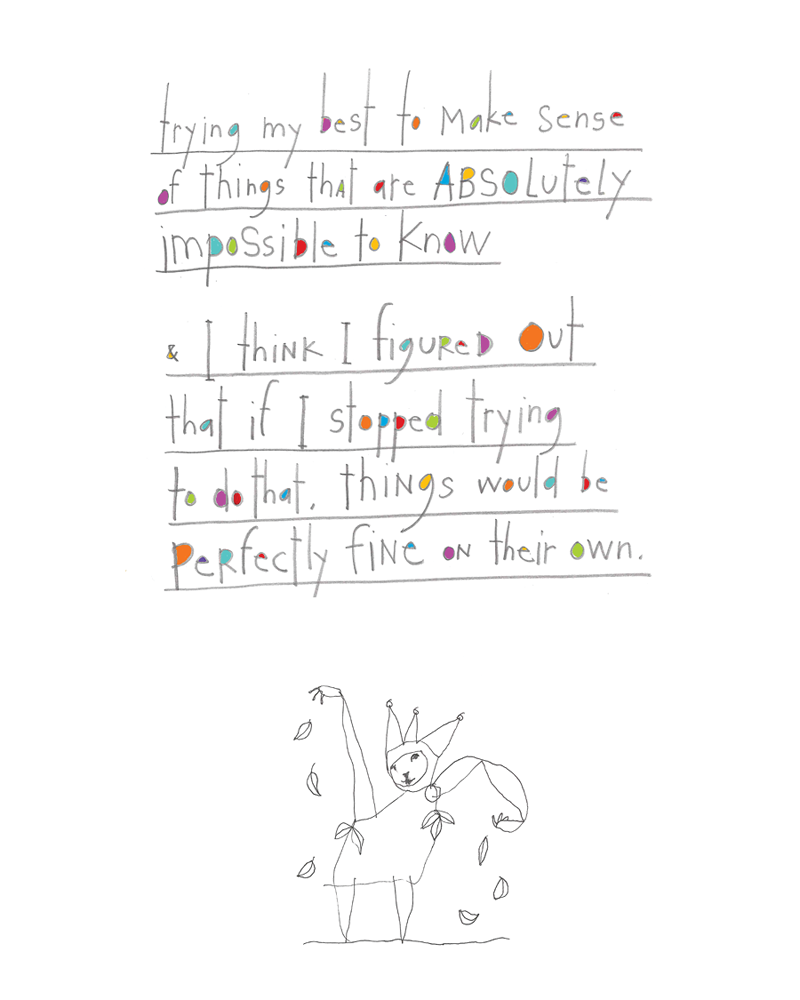 trying my best to make sense
of things that are ABSOlutely
impossible to know
& I think I figured Out
that if I stopped trying
to do that, things would be
perfectly fine on their own.